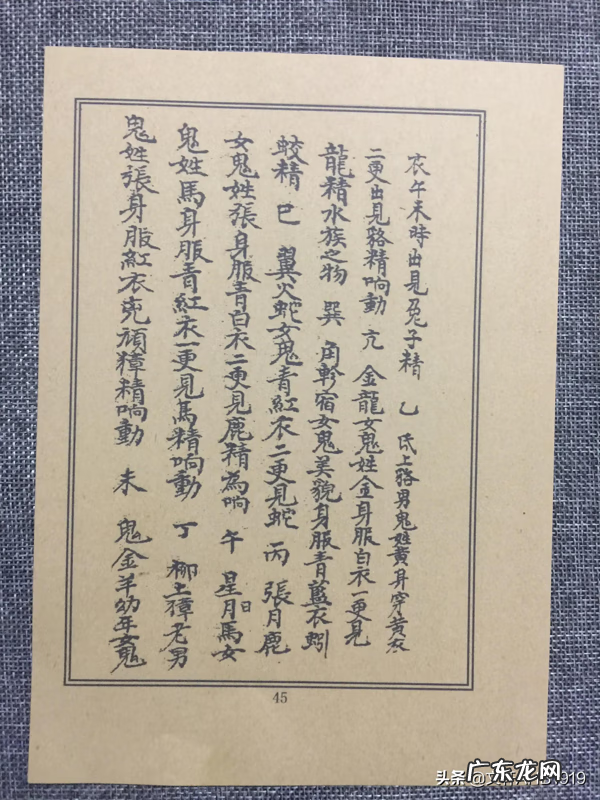 衣午未時出見兔子精　乙　氐土貉男鬼姓黄身穿黄衣
二更出見貉精响動　亢　金龍女鬼姓金身服白衣一更見
龍精水族之物　巽　角軫宿女鬼美貌身服青藍衣蚓
蛟精　巳　翼火蛇女鬼青紅衣二更見蛇　丙　張月鹿
女鬼姓張身服青白衣二更見鹿精為响　午　星月日馬女
鬼姓馬身服青紅衣一更見馬精响動　丁　柳土獐老男
鬼姓張身服紅衣克頑獐精响動　未　鬼金羊幼年女鬼
45
头条
广东龙网